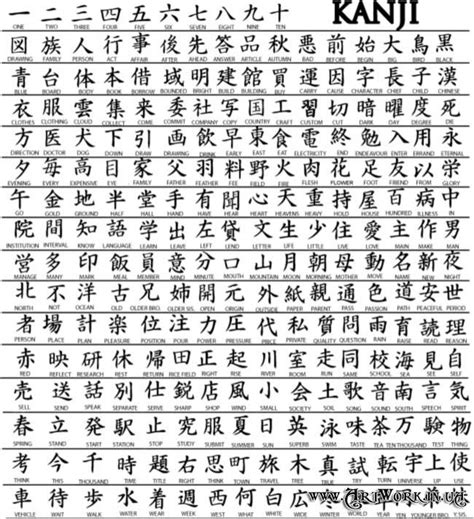 一 二 三 四 五 六 七 八 九 十 KANJI
ONE TWO THREE FOUR FIVE SIX SEVEN EIGHT NINE TEN
図 族 人 行 事 後 先 答 品 秋 悪 前 始 大 鳥 黒
DRAWING FAMILY PERSON ACT AFFAIR AFTER AHEAD ANSWER ARTICLE AUTUMN BAD BEFORE BEGIN BIG BIRD BLACK
青 台 体 本 借 域 明 建 館 買 運 因 字 長 子 漢
BLUE BOARD BODY BOOK BORROW BOUNDARY BRIGHT BUILD BUILDING BUY CARRY CAUSE CHARACTER CHIEF CHILD CHINESE
衣 服 雲 集 来 委 社 写 国 工 習 切 暗 曜 度 死
CLOTHES CLOTHING CLOUD COLLECT COME COMMIT COMPANY COPY COUNTRY CRAFT CUT DARK DAY DEGREE DIE
方 医 犬 下 引 画 飲 早 東 食 電 終 勉 入 用 永
DIRECTION DOCTOR DOG DOWN DRAW DRAWING DRINK EARLY EAST EAT ELECTRICITY END ENDEAVOUR ENTER ERRAND ETERNAL
夕 毎 高 目 家 父 羽 料 野 火 肉 花 足 友 以
EVENING EVERY EXPENSIVE EYE FAMILY FATHER FEATHER FEE FIELD FIRE FLESH FLOWER FOOT FRIEND FROM GLORY
午 金 地 半 堂 手 有 聞 心 天 重 持 屋 百 病 中
GO GOLD GROUND HALF HALL HAND HAVE HEAR HEART HEAVENS HEAVY HOLD HOUSE HUNDRED ILLNESS IN
院 間 知 語 学 出 左 貸 文 生 少 住 愛 主 作 男
INSTITUTION INTERVAL KNOW LANGUAGE LEARN LEAVE LEFT LETTER LIFE LITTLE LIVE LOVE MAIN MAKE MAN
多 印 飯 員 意 分 口 山 月 朝 母 動 名 新 夜
MANAGE MANY MARK MEAL MEMBER MIND MINUTE MOUTH MOUNTAIN MORNING MOTHER MOVE NAME NEW NIGHT
北 不 洋 古 兄 姉 開 元 外 紙 親 通 点 道 安 世
NORTH NOT OCEAN OLD OLDER BRO. OLDER SIS. OPEN ORIGIN OUTSIDE PAPER PARENT PASS PATH PEACEFUL PERIOD
者 場 計 楽 位 注 力 圧 代 私 質 問 雨 育 理
PERSON PLACE PLAN PLEASURE POSITION POUR POWER PRESSURE PRIVATE QUALITY QUESTION RAIN READ REASON
赤 映 研 休 帰 右 正 起 川 室 走 同 校 海 見 自
RED REFLECT RESEARCH REST RETURN RIGHT RIGHT RISE RIVER ROOM RUN SAME SCHOOL SEA SEE SELF
売 送 話 別 仕 鋭 店 風 小 会 土 歌 音 南 言 気
SELL SEND SPEAK SEPARATE SERVE SHARP SHOP WIND SMALL SOCIETY SOIL SONG SOUND SOUTH SPEECH SPIRIT
春 立 発 駅 止 究 服 夏 日 英 泳 味 茶 万 験 物
SPRING STAND START STATION STOP STUDY SUMMER SUN SWIM TASTE TEA TEN THOUSAND TEST THING
考 今 千 時 題 右 町 思 木 旅 真 試 転 宇 上 使
THINK THIS THOUSAND TIME TITLE TOWN TREE TRIP TRUE TRY TURN UNIVERSE UP USE
車 待 歩 水 週 西 何 白 広 冬
www.ArtWork.in.ua